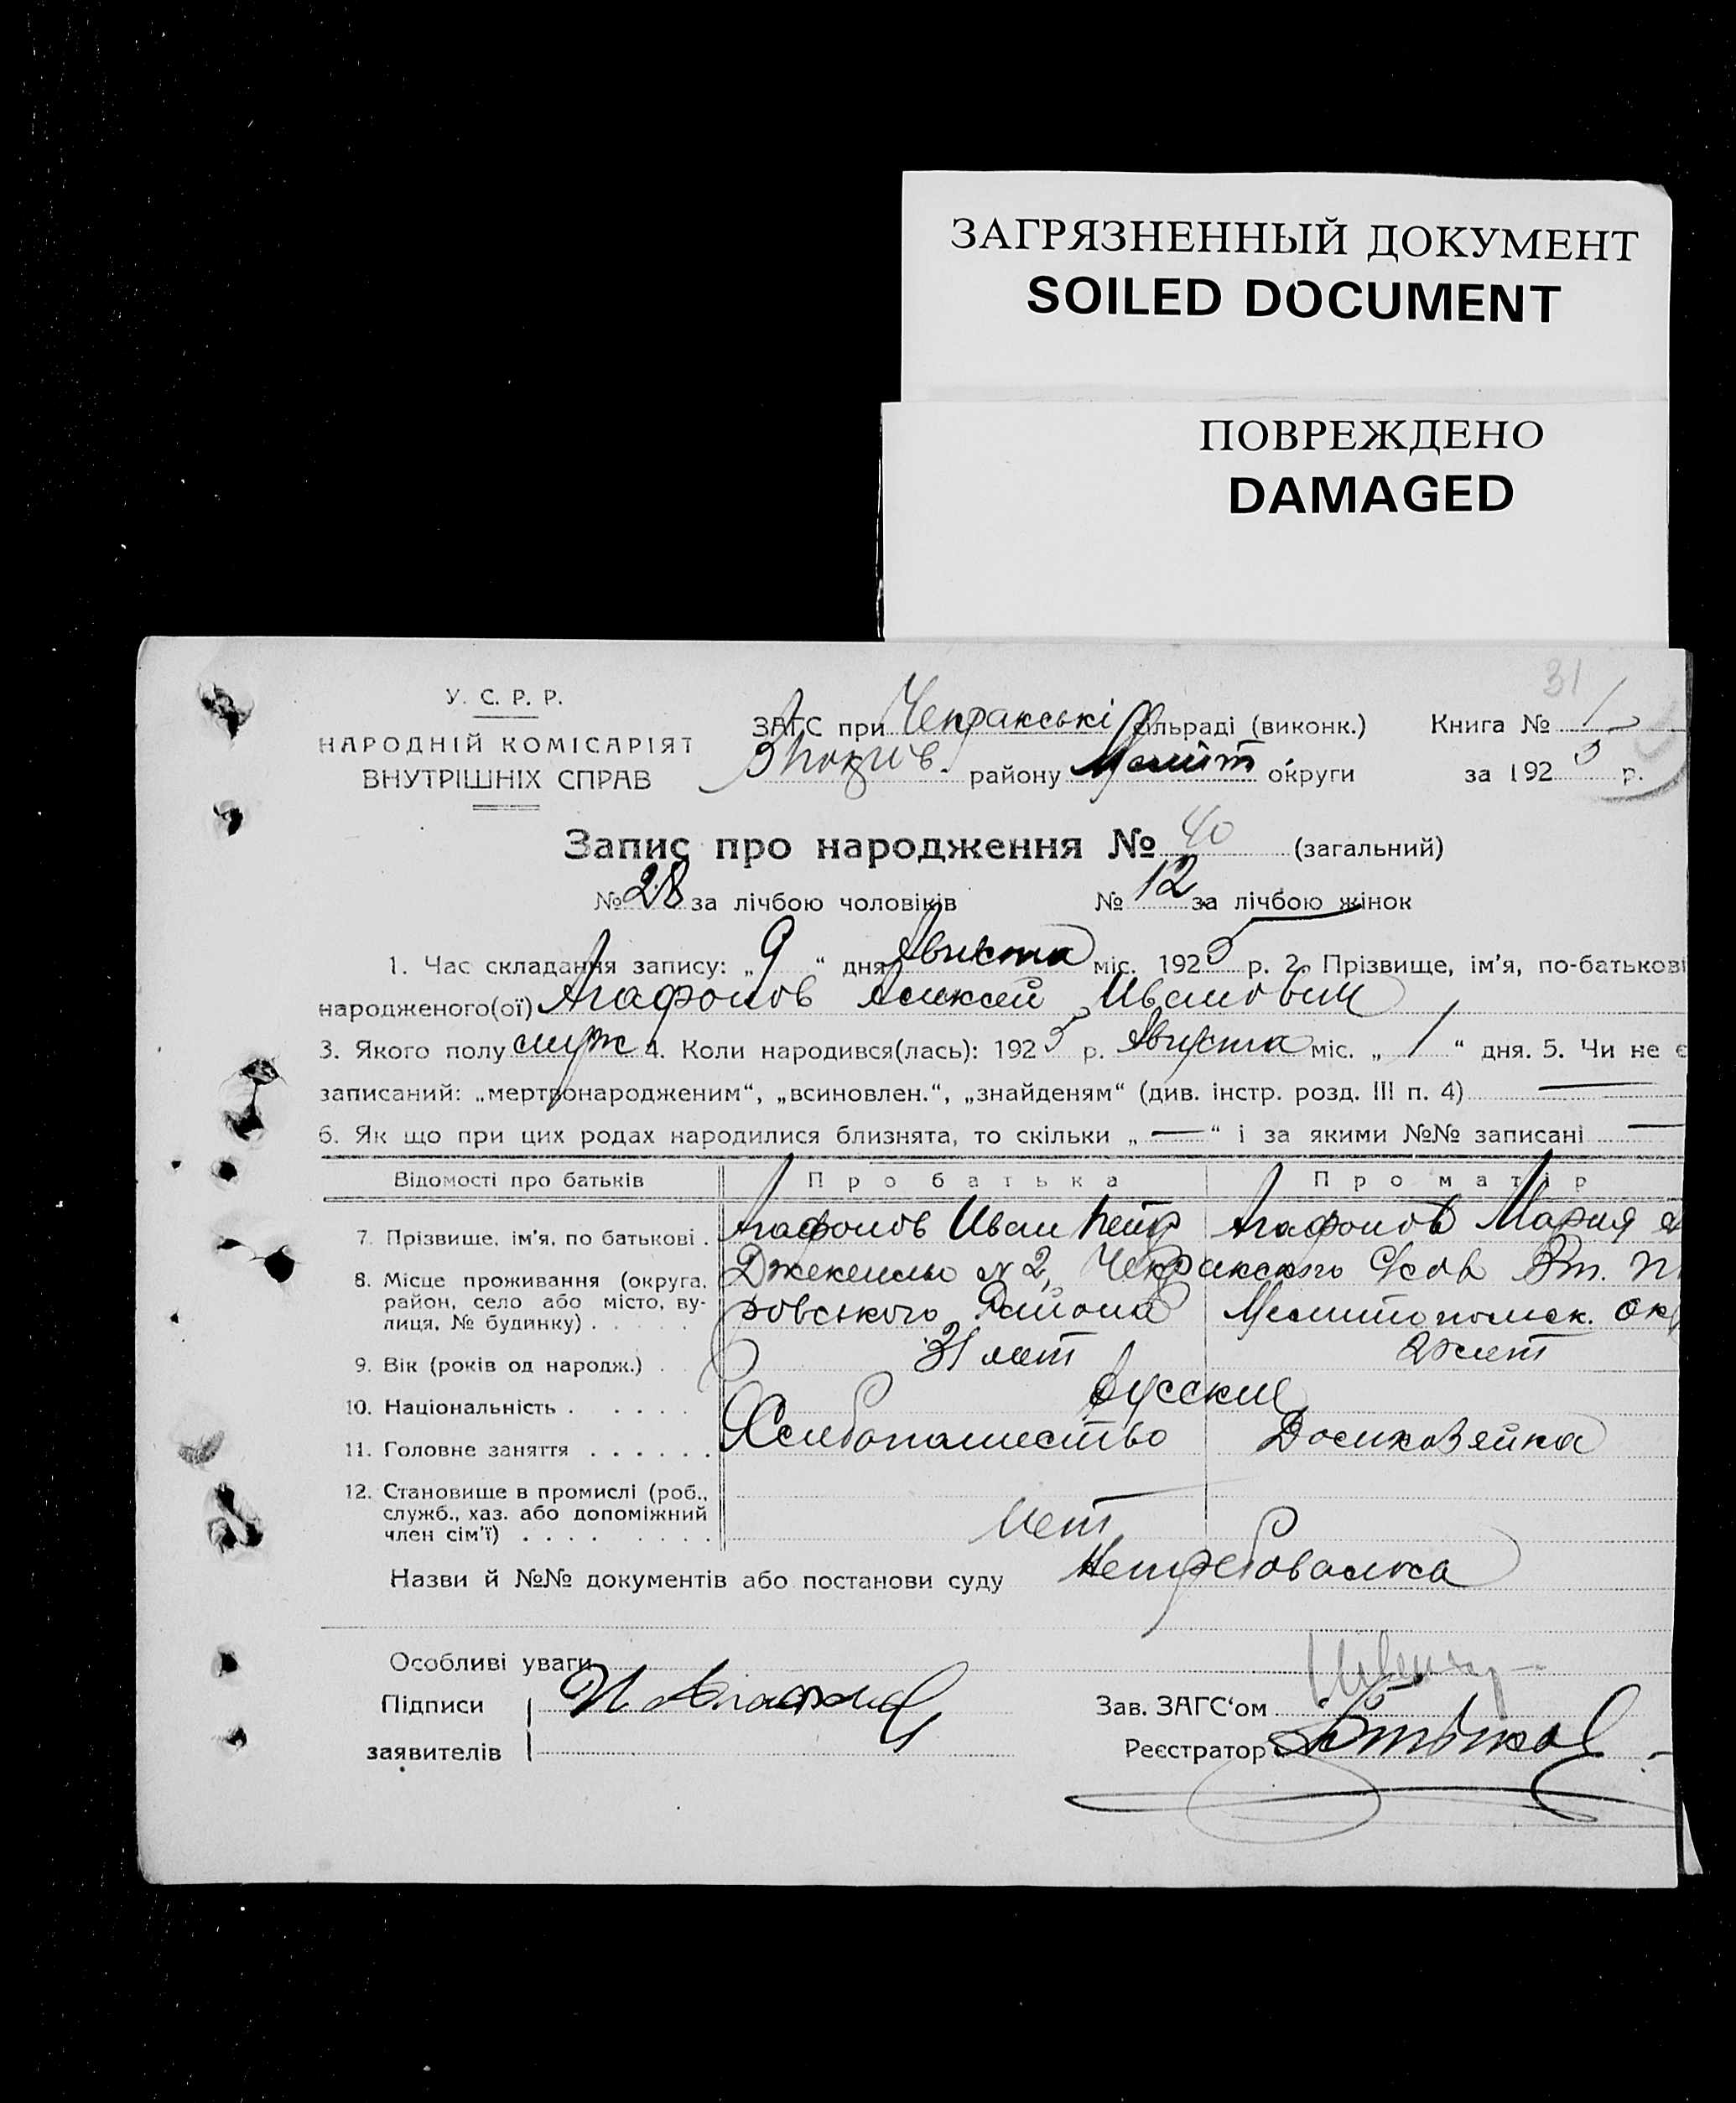 ЗАГРЯЗНЕННЫЙ ДОКУМЕНТ
SOILED DOCUMENT
ПОВРЕЖДЕНО
DAMAGED
31
У. С. Р. Р.
НАРОДНІЙ КОМІСАРІЯТ
ВНУТРІШНІХ СПРАВ
ЗАГС при Чекракські сільраді (виконк.) Книга № 1
району Меліт округи за 1925 р.
Запис про народження № 40 (загальний)
№ 28 за лічбою чоловіків № 12 за лічбою жінок
1. Час складання запису: „9“ дня Августа міс. 1925 р. 2. Прізвище, ім'я, по-батькові
народженого(ої) Агафонов Алексей Иванович
3. Якого полу муж 4. Коли народився(лась): 1925 р. Августа міс. „1“ дня. 5. Чи не є
записаний: „мертвонародженим“, „всиновлен.“, „знайденям“ (див. інстр. розд. III п. 4) —
6. Як що при цих родах народилися близнята, то скільки „—“ і за якими №№ записані —
Відомості про батьків Про батька Про матір
7. Прізвище, ім'я, по батькові . Агафонов Иван Петр Агафонов Мария
8. Місце проживання (округа, № 2, Чекракского
район, село або місто, ву-
лиця, № будинку) . . . . . ровского Района Мелитопольск. Окр
9. Вік (років од народж.) . 31 лет лет
10. Національність . . . . . Русские
11. Головне заняття . . . . . . Хлебопашество Домхозяйка
12. Становище в промислі (роб.,
служб., хаз. або допоміжний
член сім'ї) . . . . . . . . Нет
Назви й №№ документів або постанови суду Нетребовалось
Особливі уваги
Підписи И. Агафонов Зав. ЗАГС'ом
заявителів Реєстратор